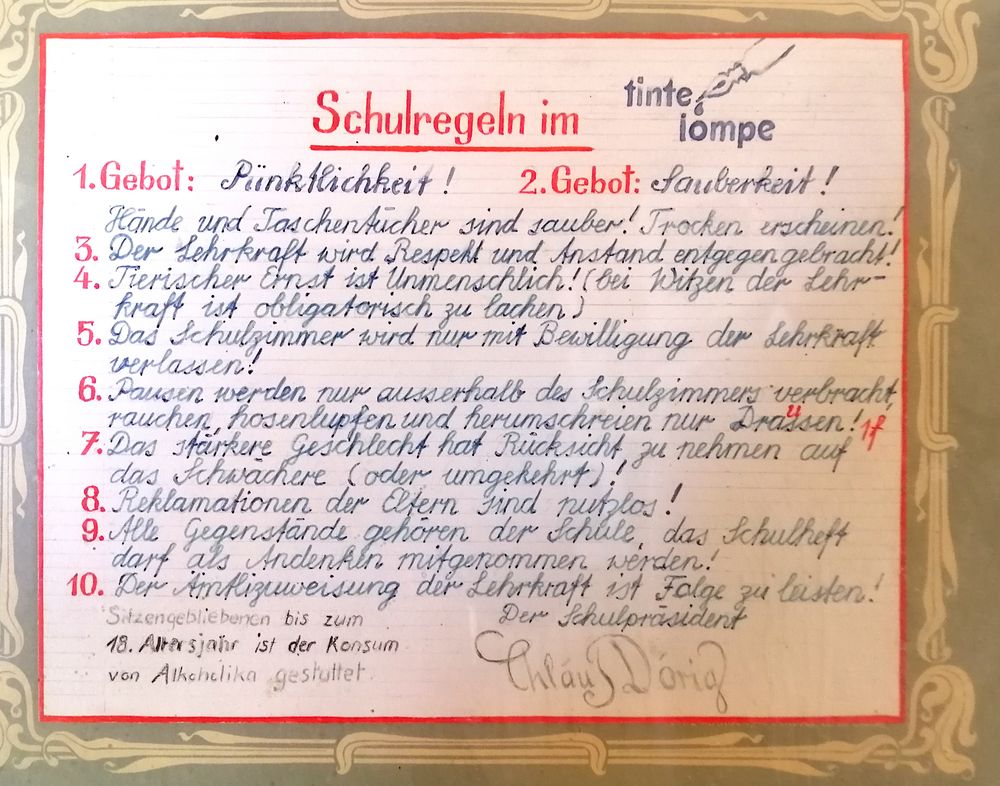 Schulregeln im tinte
lompe
1. Gebot: Pünktlichkeit! 2. Gebot: Sauberkeit!
Hände und Taschentücher sind sauber! Trocken erscheinen!
3. Der Lehrkraft wird Respekt und Anstand entgegengebracht!
4. Tierischer Ernst ist Unmenschlich! (bei Witzen der Lehr-
kraft ist obligatorisch zu lachen)
5. Das Schulzimmer wird nur mit Bewilligung der Lehrkraft
verlassen!
6. Pausen werden nur ausserhalb des Schulzimmers verbracht,
rauchen, hosenlupfen und herumschreien nur Draussen! 1f
7. Das stärkere Geschlecht hat Rücksicht zu nehmen auf
das Schwächere (oder umgekehrt)!
8. Reklamationen der Eltern sind nutzlos!
9. Alle Gegenstände gehören der Schule, das Schulheft
darf als Andenken mitgenommen werden!
10. Der Amtlizuweisung der Lehrkraft ist Folge zu leisten!
Sitzengebliebenen bis zum
18. Altersjahr ist der Konsum
von Alkoholika gestattet.
Der Schulpräsident
Chläus Dörig